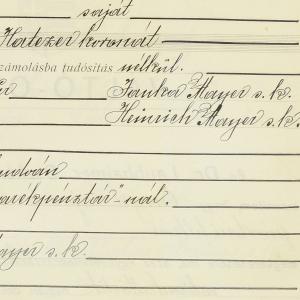 saját
Hatezer koronát
számolásba tudósítás nélkül.
Janka Mayer s. k.
Heinrich Mayer s. k.
arékpénztár"-nál.
ayer s. k.